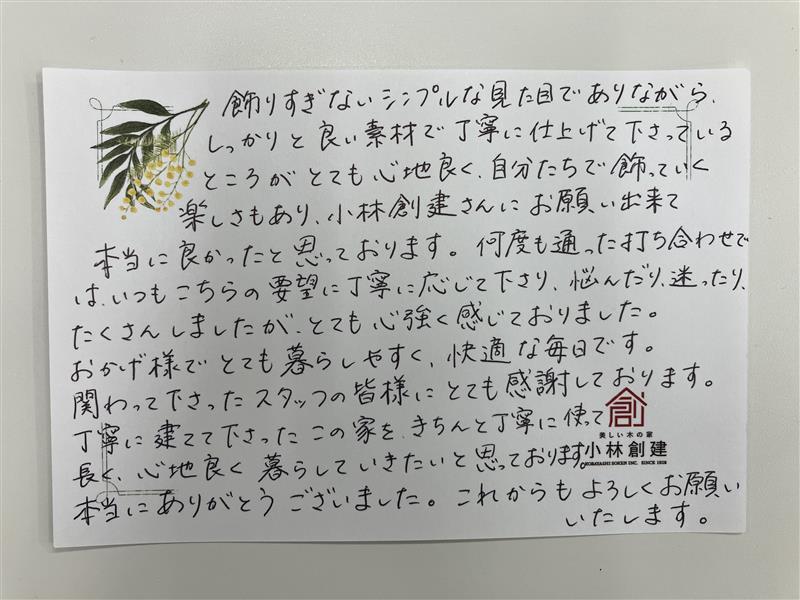 飾りすぎないシンプルな見た目でありながら、
しっかりと良い素材で丁寧に仕上げて下さっている
ところがとても心地良く、自分たちで飾っていく
楽しさもあり、小林創建さんにお願い出来て
本当に良かったと思っております。何度も通った打ち合わせで
は、いつもこちらの要望に丁寧に応じて下さり、悩んだり、迷ったり、
たくさんしましたが、とても心強く感じておりました。
おかげ様でとても暮らしやすく、快適な毎日です。
関わって下さったスタッフの皆様にとても感謝しております。
丁寧に建てて下さったこの家を、きちんと丁寧に使って
長く、心地良く暮らしていきたいと思っております。
本当にありがとうございました。これからもよろしくお願い
いたします。
創
美しい木の家
小林創建
©KOBAYASHI SOKEN INC. SINCE 1928